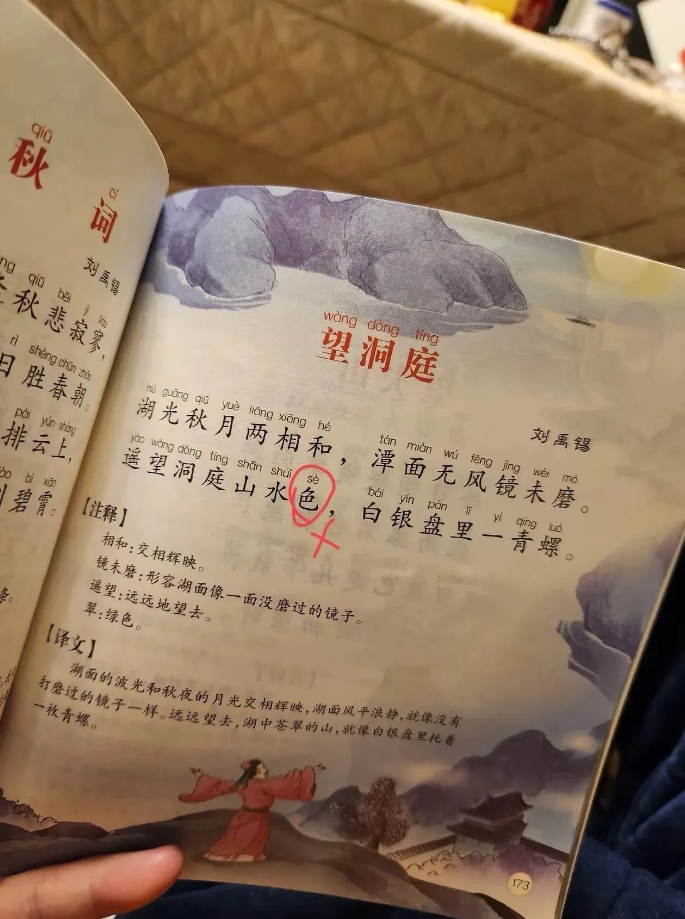 qiū
秋
cí
词
刘禹锡
qiū bēi jì liáo
秋悲寂寥，
rì shèng chūn zhāo
日胜春朝。
pái yún shàng
排云上，
bì xiāo
碧霄。
wàng dòng tíng
望洞庭
刘禹锡
hú guāng qiū yuè liǎng xiāng hé tán miàn wú fēng jìng wèi mó
湖光秋月两相和，潭面无风镜未磨。
yáo wàng dòng tíng shān shuǐ sè bái yín pán lǐ yì qīng luó
遥望洞庭山水色，白银盘里一青螺。
【注释】
相和：交相辉映。
镜未磨：形容湖面像一面没磨过的镜子。
遥望：远远地望去。
翠：绿色。
【译文】
湖面的波光和秋夜的月光交相辉映，湖面风平浪静，就像没有
打磨过的镜子一样。远远望去，湖中苍翠的山，就像白银盘里托着
一枚青螺。
173